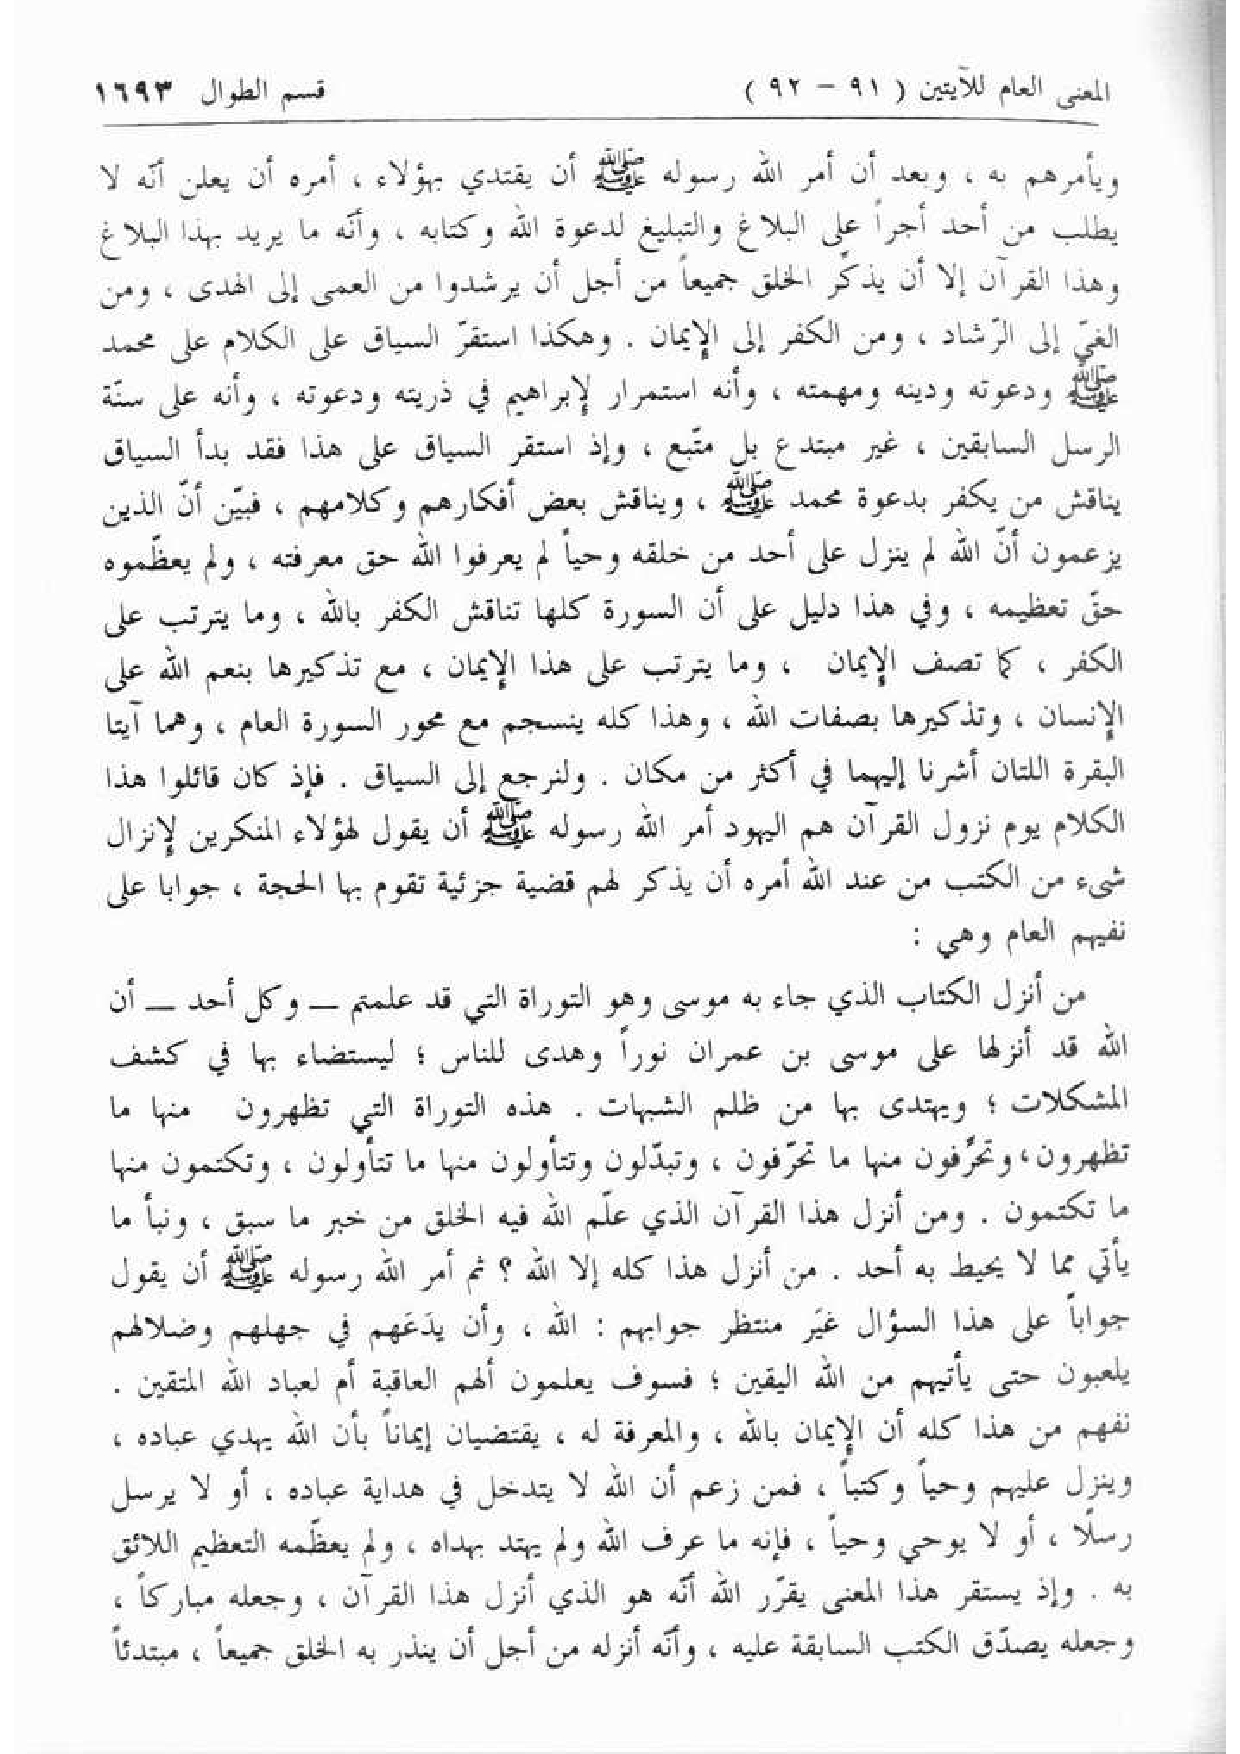 المعنى العام للآيتين ( ٩١ – ٩٢ ) قسم الطوال ١٦٩٣
ويأمرهم به ، وبعد أن أمر الله رسوله ﷺ أن يقتدي بهؤلاء ، أمره أن يعلن أنّه لا
يطلب من أحد أجراً على البلاغ والتبليغ لدعوة الله وكتابه ، وأنّه ما يريد بهذا البلاغ
وهذا القرآن إلا أن يذكّر الخلق جميعاً من أجل أن يرشدوا من العمى إلى الهدى ، ومن
الغيّ إلى الرّشاد ، ومن الكفر إلى الإيمان . وهكذا استقرّ السياق على الكلام على محمد
ﷺ ودعوته ودينه ومهمته ، وأنه استمرار لإبراهيم في ذريته ودعوته ، وأنه على سنّة
الرسل السابقين ، غير مبتدع بل متّبع ، وإذ استقر السياق على هذا فقد بدأ السياق
يناقش من يكفر بدعوة محمد ﷺ ، ويناقش بعض أفكارهم وكلامهم ، فبيّن أنّ الذين
يزعمون أنّ الله لم ينزل على أحد من خلقه وحياً لم يعرفوا الله حق معرفته ، ولم يعظّموه
حقّ تعظيمه ، وفي هذا دليل على أن السورة كلها تناقش الكفر بالله ، وما يترتب على
الكفر ، كما تصف الإيمان ، وما يترتب على هذا الإيمان ، مع تذكيرها بنعم الله على
الإنسان ، وتذكيرها بصفات الله ، وهذا كله ينسجم مع محور السورة العام ، وهما آيتا
البقرة اللتان أشرنا إليهما في أكثر من مكان . ولنرجع إلى السياق . فإذ كان قائلوا هذا
الكلام يوم نزول القرآن هم اليهود أمر الله رسوله ﷺ أن يقول لهؤلاء المنكرين لإنزال
شىء من الكتب من عند الله أمره أن يذكر لهم قضية جزئية تقوم بها الحجة ، جوابا على
نفيهم العام وهي :
من أنزل الكتاب الذي جاء به موسى وهو التوراة التي قد علمتم ــ وكل أحد ــ أن
الله قد أنزلها على موسى بن عمران نوراً وهدى للناس ؛ ليستضاء بها في كشف
المشكلات ؛ ويهتدى بها من ظلم الشبهات . هذه التوراة التي تظهرون منها ما
تظهرون، وتحرِّفون منها ما تحرّفون ، وتبدّلون وتتأولون منها ما تتأولون ، وتكتمون منها
ما تكتمون . ومن أنزل هذا القرآن الذي علّم الله فيه الخلق من خبر ما سبق ، ونبأ ما
يأتي مما لا يحيط به أحد . من أنزل هذا كله إلا الله ؟ ثم أمر الله رسوله ﷺ أن يقول
جواباً على هذا السؤال غيَر منتظر جوابهم : الله ، وأن يدَعَهم في جهلهم وضلالهم
يلعبون حتى يأتيهم من الله اليقين ؛ فسوف يعلمون ألهم العاقبة أم لعباد الله المتقين .
نفهم من هذا كله أن الإيمان بالله ، والمعرفة له ، يقتضيان إيماناً بأن الله يهدي عباده ،
وينزل عليهم وحياً وكتباً ، فمن زعم أن الله لا يتدخل في هداية عباده ، أو لا يرسل
رسلًا ، أو لا يوحي وحياً ، فإنه ما عرف الله ولم يهتد بهداه ، ولم يعظّمه التعظيم اللائق
به . وإذ يستقر هذا المعنى يقرّر الله أنّه هو الذي أنزل هذا القرآن ، وجعله مباركاً ،
وجعله يصدّق الكتب السابقة عليه ، وأنّه أنزله من أجل أن ينذر به الخلق جميعاً ، مبتدئاً